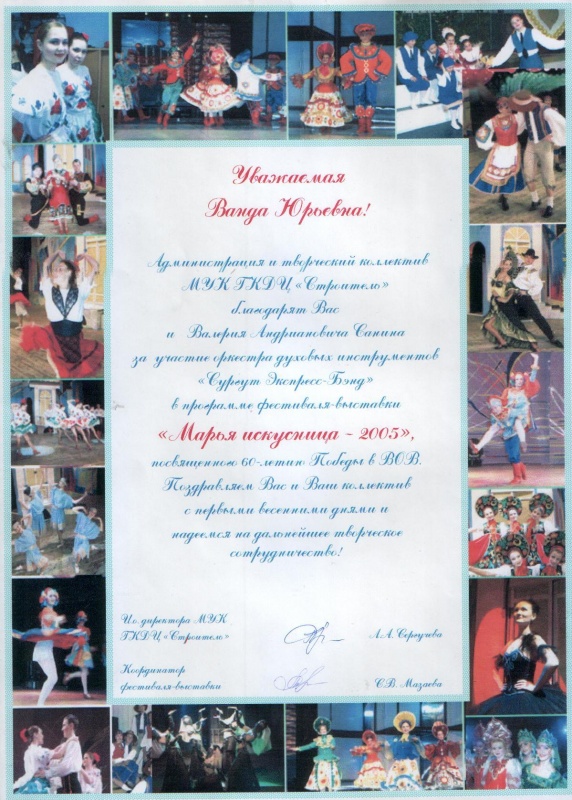 Уважаемая
Ванда Юрьевна!
Администрация и творческий коллектив
МУК ГКДЦ «Строитель»
благодарят Вас
и Валерия Андриановича Санина
за участие оркестра духовых инструментов
«Сургут Экспресс-Бэнд»
в программе фестиваля-выставки
«Марья искусница - 2005»,
посвященною 60-летию Победы в ВОВ.
Поздравляем Вас и Ваш коллектив
с первыми весенними днями и
надеемся на дальнейшее творческое
сотрудничество!
И.о. директора МУК
ГКДЦ «Строитель»
Л.А. Сергучева
Координатор
фестиваля-выставки
С.В. Мазаева